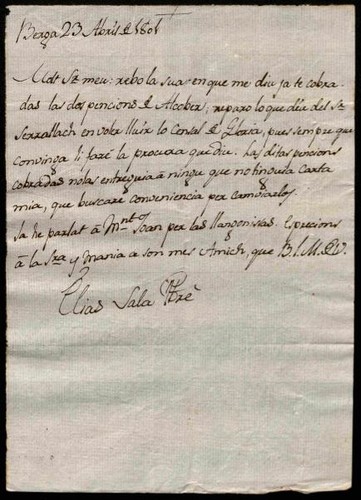 Berga 23 Abril de 1801
Mol Sr meu: rebo la sua en que me diu ja te cobra-
das las dos pencions de Alcober; reparo lo que diu del Sr
Serrallach en voler lluir lo Censal de, pues sempre que
convinga li faré la procura que diu. Las ditas pensions
cobradas no las entreguia á ningu que no tinguia Carta
mia, que buscare conveniencia per cambiarlos.
Ja he parlat á Mn. Joan per las llangonisas. Expecions
á la Sra y mania á son mes Amich, que B. S. M. de V.
Elias Sala Pbre